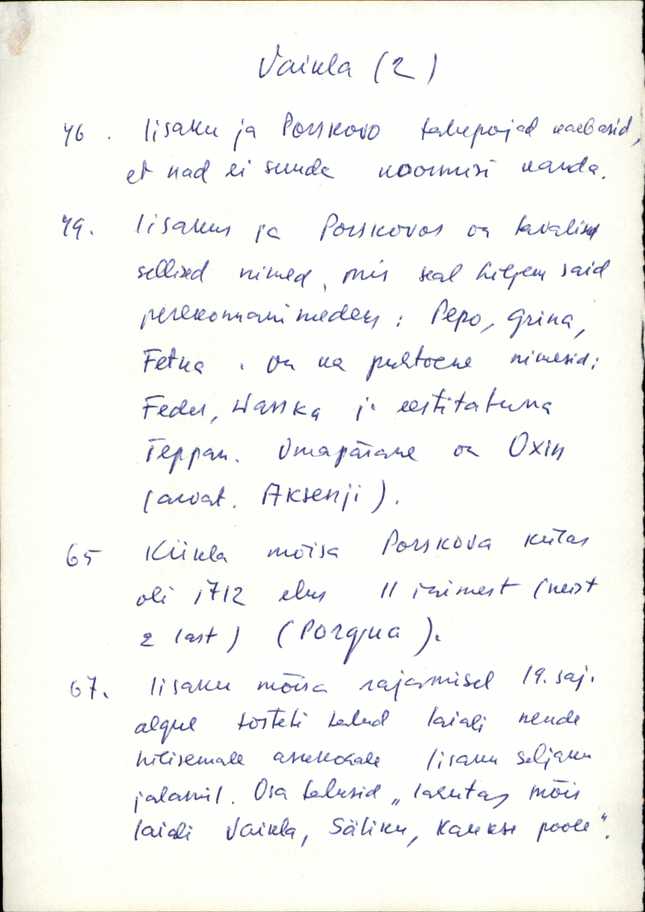 Vaikla (2)
46. Iisaku ja Porskovo talupojad kaebasid,
et nad ei suuda koormisi kanda.
49. Iisakus ja Porskovos on tavalised
sellised nimed, mis seal hiljem said
perekonnanimedeks: Pepo, Grina,
Fetka. On ka puhtvene nimesid:
Feder, Wasska ja eestitatuna
Teppan. Omapärane on Oxin
(arvat. Aksenji).
65 Kiikla mõisa Porskova külas
oli 1712 elus 11 inimest (neist
2 last) (Pozgua).
67. Iisaku mõisa rajamisel 19. saj.
algul tõsteti talud laiali nende
hilisemale asukohale Iisaku seljaku
jalamil. Osa talusid „lahutas mõis
laiali Vaikla, Säliku, Kauksi poole".